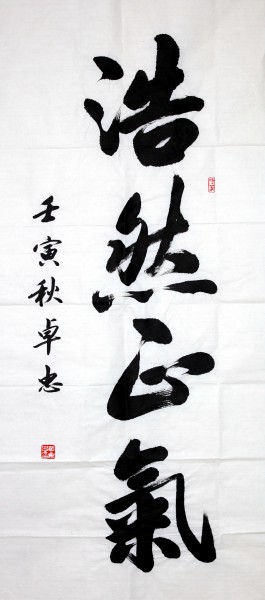 浩然正氣
壬寅秋卓忠